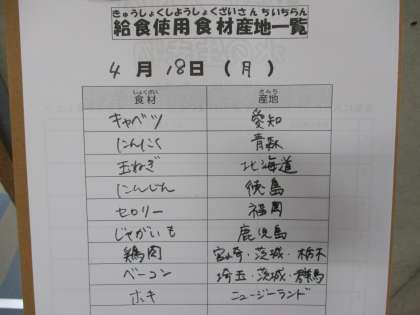 きゅうしょくしようしょくざいさんちいちらん
給食使用食材産地一覧
4月18日(月)
しょくざい さんち
食材 産地
キャベツ 愛知
にんにく 青森
玉ねぎ 北海道
にんじん 徳島
セロリー 福岡
じゃがいも 鹿児島
鶏肉 宮崎・茨城・栃木
ベーコン 埼玉・茨城・群馬
ホキ ニュージーランド